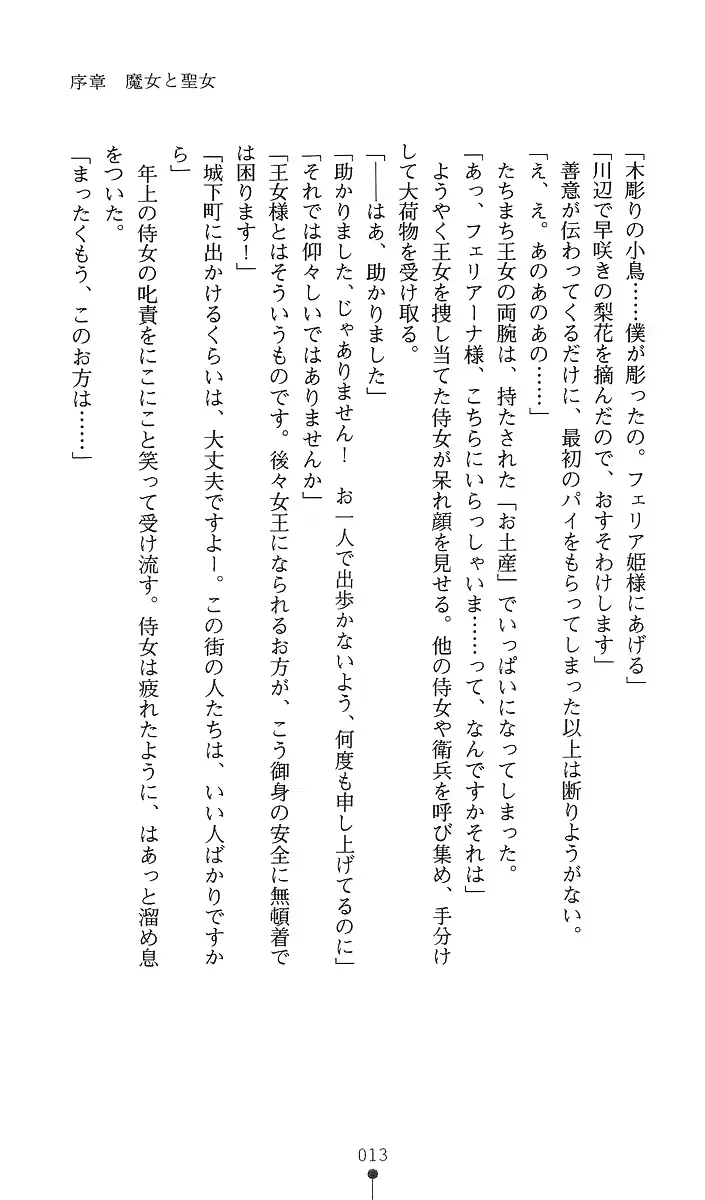 序章　魔女と聖女
「木彫りの小鳥……僕が彫ったの。フェリア姫様にあげる」
「川辺で早咲きの梨花を摘んだので、おすそわけします」
　善意が伝わってくるだけに、最初のパイをもらってしまった以上は断りようがない。
「え、え。あのあのあの……」
　たちまち王女の両腕は、持たされた「お土産」でいっぱいになってしまった。
「あっ、フェリアーナ様、こちらにいらっしゃいま……って、なんですかそれは」
　ようやく王女を捜し当てた侍女が呆れ顔を見せる。他の侍女や衛兵を呼び集め、手分け
して大荷物を受け取る。
「――はあ、助かりました」
「助かりました、じゃありません！　お一人で出歩かないよう、何度も申し上げてるのに」
「それでは仰々しいではありませんか」
「王女様とはそういうものです。後々女王になられるお方が、こう御身の安全に無頓着で
は困ります！」
「城下町に出かけるくらいは、大丈夫ですよー。この街の人たちは、いい人ばかりですか
ら」
　年上の侍女の叱責をにこにこと笑って受け流す。侍女は疲れたように、はあっと溜め息
をついた。
「まったくもう、このお方は……」
013